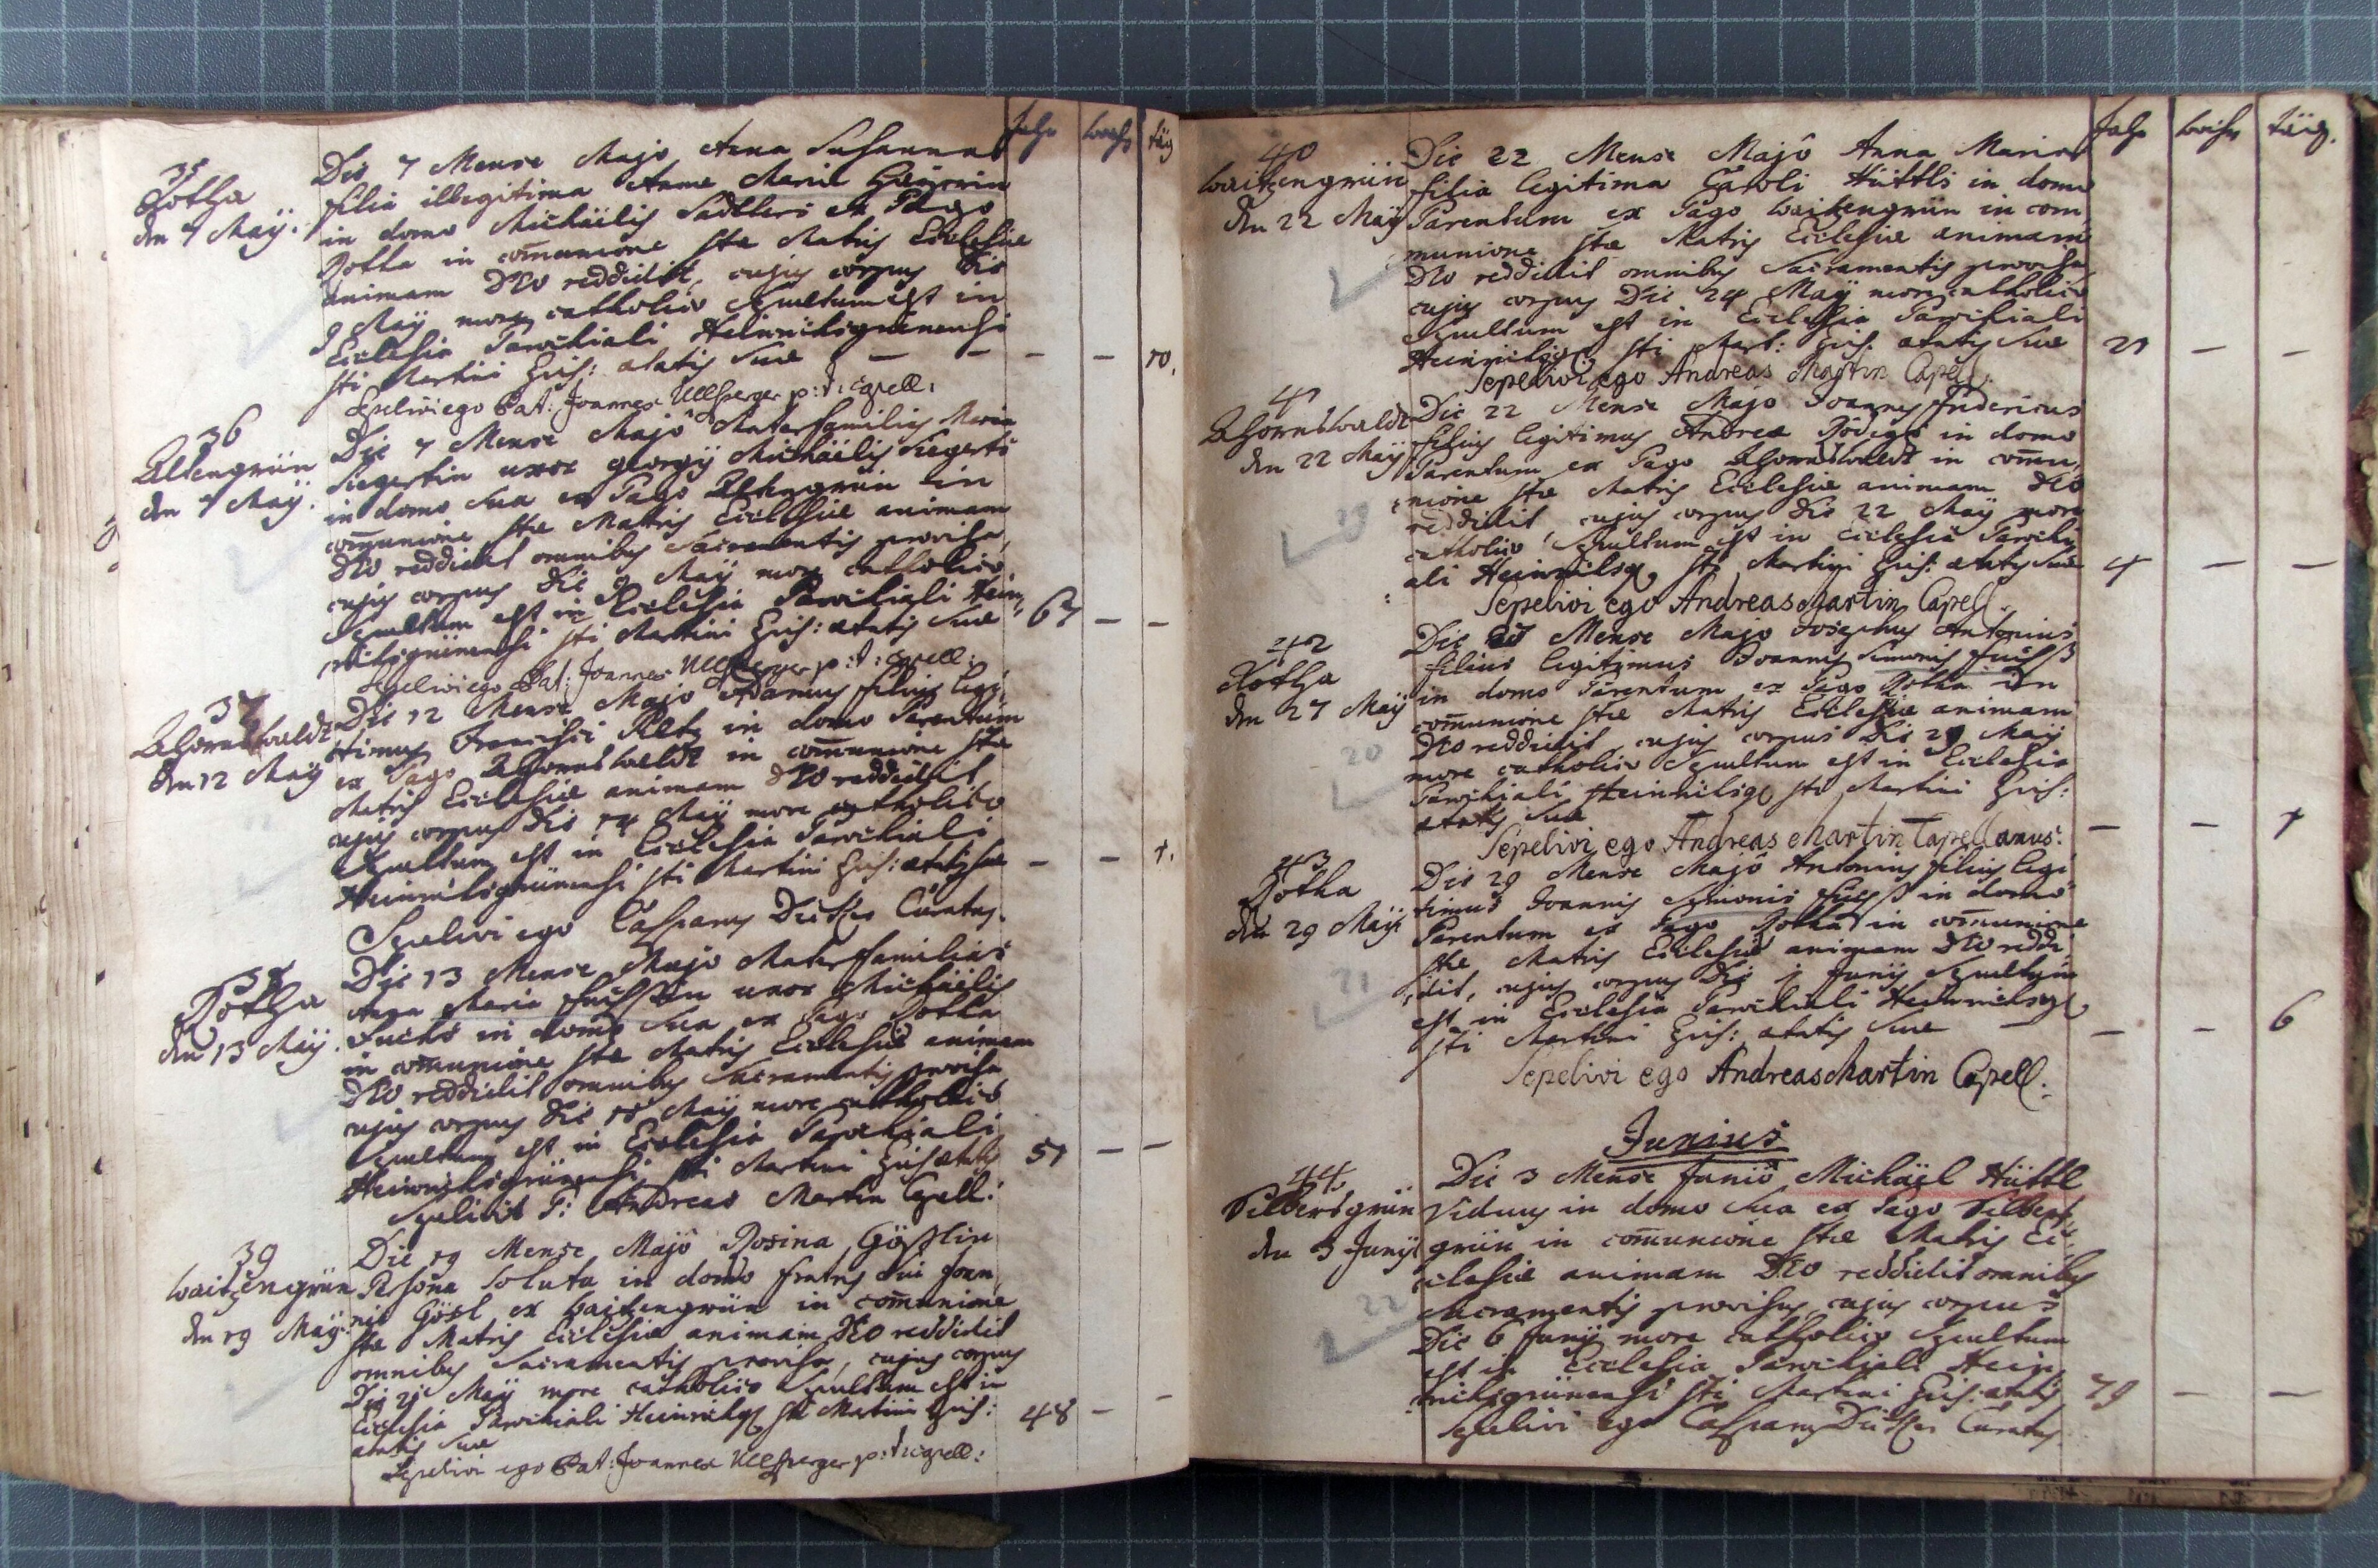 Jahr woch täg
35
Rotha
den 7 Maÿ.
Die 7 Mense Majo Anna Susanna
filia illegitima Annæ Mariæ
in domo Michäelis Sadtleri ex Pago
Rotha in com̄unione stæ Matris Ecclesiæ
animam DEO reddidit, cujus corpus Die
9 Maÿ more catholico Sepultum est in
Ecclesia Parochiali Heinrichsgrünensi
sti Martini Epis: ætatis Suæ — — — — 10.
Sepelivi ego Pat: Joannes Ullsperger p: t: Capell:
36
Altengrün
den 7 Maÿ.
Die 7 Mense Majô Materfamilias Maria
Siegertin uxor georgÿ Michäelis Siegerts
in domo Sua ex Pago Altengrün in
com̄unione stæ Matris Ecclesiæ animam
DEO reddidit omnibus Sacramentis provisa,
cujus corpus Die 9 Maÿ more catholico
Sepultum est in Ecclesia Parochiali Hein,,
richsgrünensi sti Martini Epis: ætatis Suæ 67 — —
Sepelivi ego Pat: Joannes Ullsperger p: t: Capell:
37
Ahornswaldt
den 12 Maÿ
Die 12 Mense Majo Adamus filius legi,,
timus Francisci Peltz in domo Parentum
ex Pago Ahornswaldt in com̄unione stæ
Matris Ecclesiæ animam DEO reddidit,
cujus corpus Die 14 Maÿ more catholico
Sepultum est in Ecclesia Parochiali
Heinrichsgrünensi sti Martini Epis: ætatis suæ — — 1.
Sepelivi ego Casparus Curatus.
38
Rotha
den 13 Maÿ.
Die 13 Mense Majo Materfamilias
Anna Maria Fuchssin uxor Michäelis
Fuchs in domo Sua ex Pago Rotha
in com̄unione stæ Matris Ecclesiæ animam
DEO reddidit omnibus Sacramentis provisa
cujus corpus Die 15 Maÿ more catholico
Sepultum est in Ecclesia Parochiali
Heinrichsgrünensi sti Martini Epis ætatis 51 — —
Sepelivit P: Andreas Martin Capell:
39
Waitzengrün
den 19 Maÿ.
Die 19 Mense Majô Rosina Gößlin
Persona Soluta in domo fratris sui Joan,,
nis Gösl ex Waitzengrün in com̄unione
stæ Matris Ecclesiæ animam DEO reddidit
omnibus Sacramentis provisa, cujus corpus
Die 21 Maÿ more catholico Sepultum est in
Ecclesia Parochiali Heinrichsg sti Martini Epis:
ætatis Suæ 48 — —
Sepelivi ego Pat: Joannes Ullsperger p: t: Capell:
Jahr woche täg.
40
Waitzengrün
den 22 Maÿ
Die 22 Mense Majô Anna Maria
filia legitima Caroli Hüttls in domo
Parentum ex Pago Waitzengrün in com,,
munione stæ Matris Ecclesiæ animam
DEO reddidit omnibus Sacramentis provisa,
cujus corpus Die 24 Maÿ more catholico
Sepultum est in Ecclesia Parochiali
Heinrichsg sti Mart: Epis. ætatis Suæ 21 — —
Sepelivi ego Andreas Martin Capell.
41
Ahornswaldt
den 22 Maÿ
Die 22 Mense Majo Joannes Fridericus
filius legitimus Andreæ in domo
Parentum ex Pago Ahornswaldt in com̄u,,
nione stæ Matris Ecclesiæ animam DEO
reddidit, cujus corpus Die 22 Maÿ more
catholico Sepultum est in Ecclesia Parochi,,
ali Heinrichsg, sti Martini Epis: ætatis Suæ 4 — —
19
Sepelivi ego Andreas Martin Capell.
42
Rotha
den 27 Maÿ
Die 27 Mense Majo Josephus Antonius
filius legitimus Joannis Simonis Fuchß
in domo Parentum ex Pago Rotha in
com̄unione stæ Matris Ecclesiæ animam
DEO reddidit, cujus corpus Die 29 Maÿ
more catholico Sepultum est in Ecclesia
Parochiali Heinrichsg sti Martini Epis:
ætatis Suæ — — 1
20
Sepelivi ego Andreas Martin Capellanus.
43
Rotha
den 29 Maÿ
Die 29 Mense Majô Antonius filius legi
timus Joannis Simonis Fuchß in domo
Parentum ex Pago Rotha in com̄unione
stæ Matris Ecclesiæ animam DEO reddi,,
dit, cujus corpus Die 1 Junÿ Sepultum
est in Ecclesia Parochiali Heinrichsg,
sti Martini Epis: ætatis Suæ — — — 6
21
Sepelivi ego Andreas Martin Capell:
Junius
44.
Silbersgrün
den 3 Junÿ
Die 3 Mense Juniô Michäel Hüttl
Viduus in domo Sua ex Pago Silbers,,
grün in com̄unione stæ Matris Ec,,
clesiæ animam DEO reddidit omnibus
Sacramentis provisus, cujus corpus
Die 6 Junÿ more catholico Sepultum
est in Ecclesia Parochiali Hein,,
richsgrünensi sti Martini Epis: ætatis 79 — —
22
Sepelivi ego Casparus Curatus.